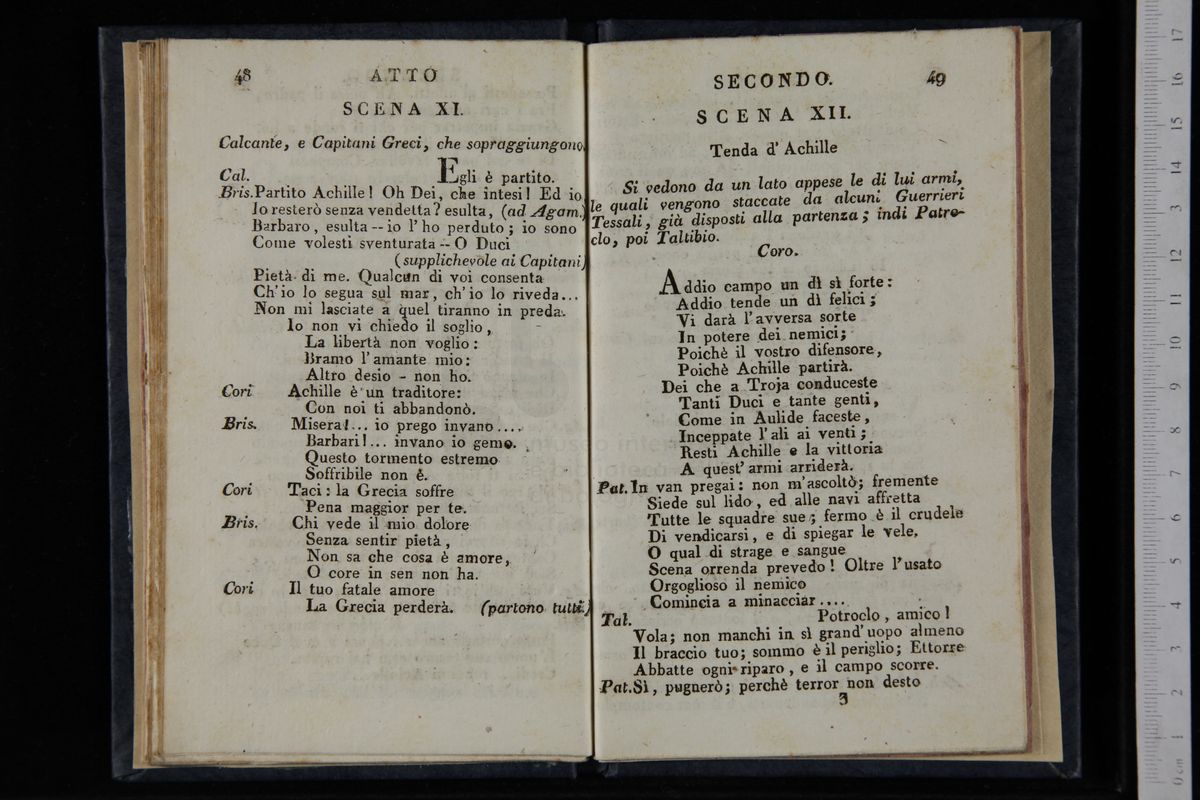 48 ATTO
SCENA XI.
Calcante, e Capitani Greci, che sopraggiungono.
Cal. Egli è partito.
Bris. Partito Achille! Oh Dei, che intesi! Ed io
Io resterò senza vendetta? esulta, (ad Agam.)
Barbaro, esulta -- io l'ho perduto; io sono
Come volesti sventurata -- O Duci
(supplichevole ai Capitani)
Pietà di me. Qualcun di voi consenta
Ch'io lo segua sul mar, ch'io lo riveda...
Non mi lasciate a quel tiranno in preda.
Io non vi chiedo il soglio,
La libertà non voglio:
Bramo l'amante mio:
Altro desio - non ho.
Cori Achille è un traditore:
Con noi ti abbandonò.
Bris. Misera!... io prego invano....
Barbari!... invano io gemo.
Questo tormento estremo
Soffribile non è.
Cori Taci: la Grecia soffre
Pena maggior per te.
Bris. Chi vede il mio dolore
Senza sentir pietà,
Non sa che cosa è amore,
O core in sen non ha.
Cori Il tuo fatale amore
La Grecia perderà. (partono tutti.)
SECONDO. 49
SCENA XII.
Tenda d' Achille
Si vedono da un lato appese le di lui armi,
le quali vengono staccate da alcuni Guerrieri
Tessali, già disposti alla partenza; indi Patro-
clo, poi Taltibio.
Coro.
Addio campo un dì sì forte:
Addio tende un dì felici;
Vi darà l'avversa sorte
In potere dei nemici;
Poichè il vostro difensore,
Poichè Achille partirà.
Dei che a Troja conduceste
Tanti Duci e tante genti,
Come in Aulide faceste,
Inceppate l'ali ai venti;
Resti Achille e la vittoria
A quest' armi arriderà.
Pat. In van pregai: non m'ascoltò; fremente
Siede sul lido, ed alle navi affretta
Tutte le squadre sue; fermo è il crudele
Di vendicarsi, e di spiegar le vele.
O qual di strage e sangue
Scena orrenda prevedo! Oltre l'usato
Orgoglioso il nemico
Comincia a minacciar....
Tal. Potroclo, amico!
Vola; non manchi in sì grand'uopo almeno
Il braccio tuo; sommo è il periglio; Ettorre
Abbatte ogni riparo, e il campo scorre.
Pat. Sì, pugnerò; perchè terror non desto
3